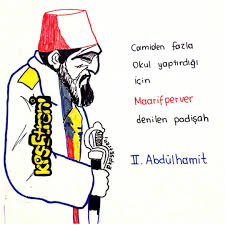 KPSStrem!
Camiden fazla
Okul yaptırdığı
için
Maarifperver
denilen padişah
II. Abdülhamit